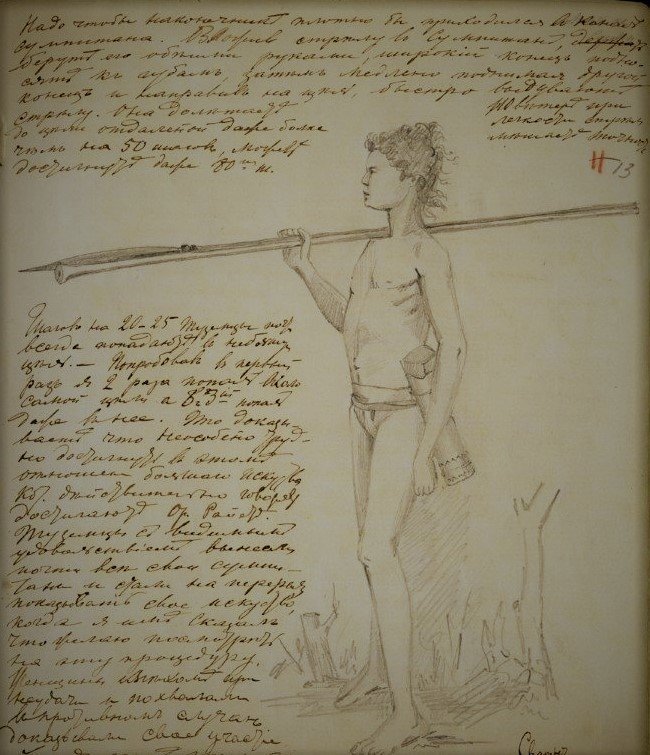 Надо чтобы наконечникъ плотно бы приходился въ каналъ
сумпитана. Вложивъ стрѣлу въ сумпитанъ,
берутъ его обѣими руками, широкій конецъ
къ губамъ, затѣмъ медлено поднимая другой
конецъ и направивъ на цѣль, быстро выдуваютъ
стрѣлу. Она долетаетъ
до цѣли отдаленой даже болѣе
чѣмъ на 50 шаговъ, можетъ
достигнуть даже 80
при
легкости
13
Шаговъ на 20-25 туземцы почт
всегда попадаютъ въ небольш
цѣль. — Попробовавъ въ первый
разъ я 2 раза попалъ
самой цѣли а въ 3ій попалъ
даже въ нее. Это доказы-
ваетъ что неособено труд-
но достигнуть въ этомъ
отношеніи большаго искуства
дѣйствительно
достигаютъ
Туземцы съ видимымъ
удовольствіемъ вынесли
почти всѣ свои сумпи-
таны и стали на перерывъ
показывать свое искуство,
когда я имъ сказалъ
что желаю посмотрѣть
на эту процедуру.
Женщины при
неудачи и похвалами
въ противномъ случаѣ
доказывали свое участіе